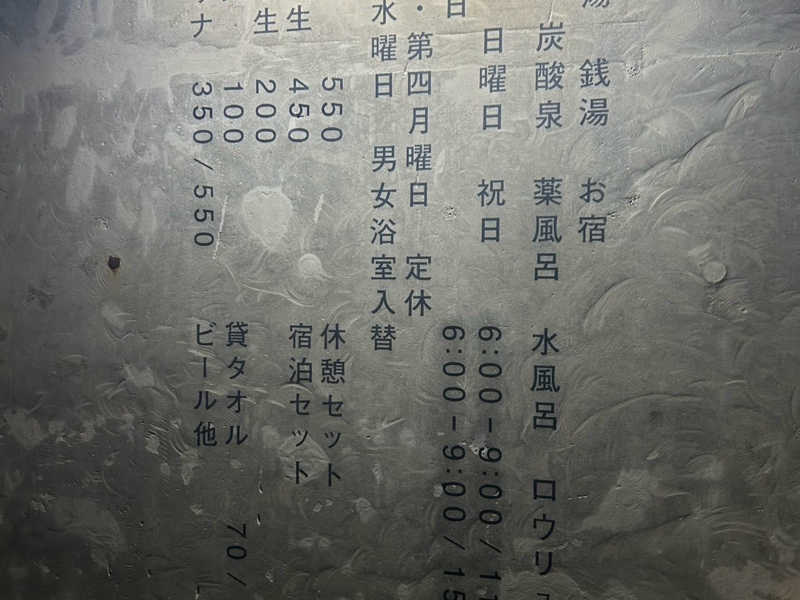 湯 銭湯 お宿
炭酸泉 薬風呂 水風呂 ロウリュ
日曜日 祝日 6:00-9:00/11
日 6:00-9:00/15
・第四月曜日 定休
水曜日 男女浴室入替
550 休憩セット
生 450 宿泊セット
生 200
100 貸タオル 70/
ナ 350/550 ビール他